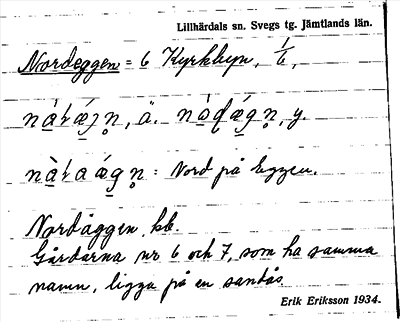 Lillhärdals sn. Svegs tg. Jämtlands län.
Nordeggen = 6 Kyrkbyn, 1/6,
ä. y.
: Nord på eggen.
Nordäggen, kb.
Gårdarna nr 6 och 7, som ha samma
namn, ligga på en sandås.
Erik Eriksson 1934.